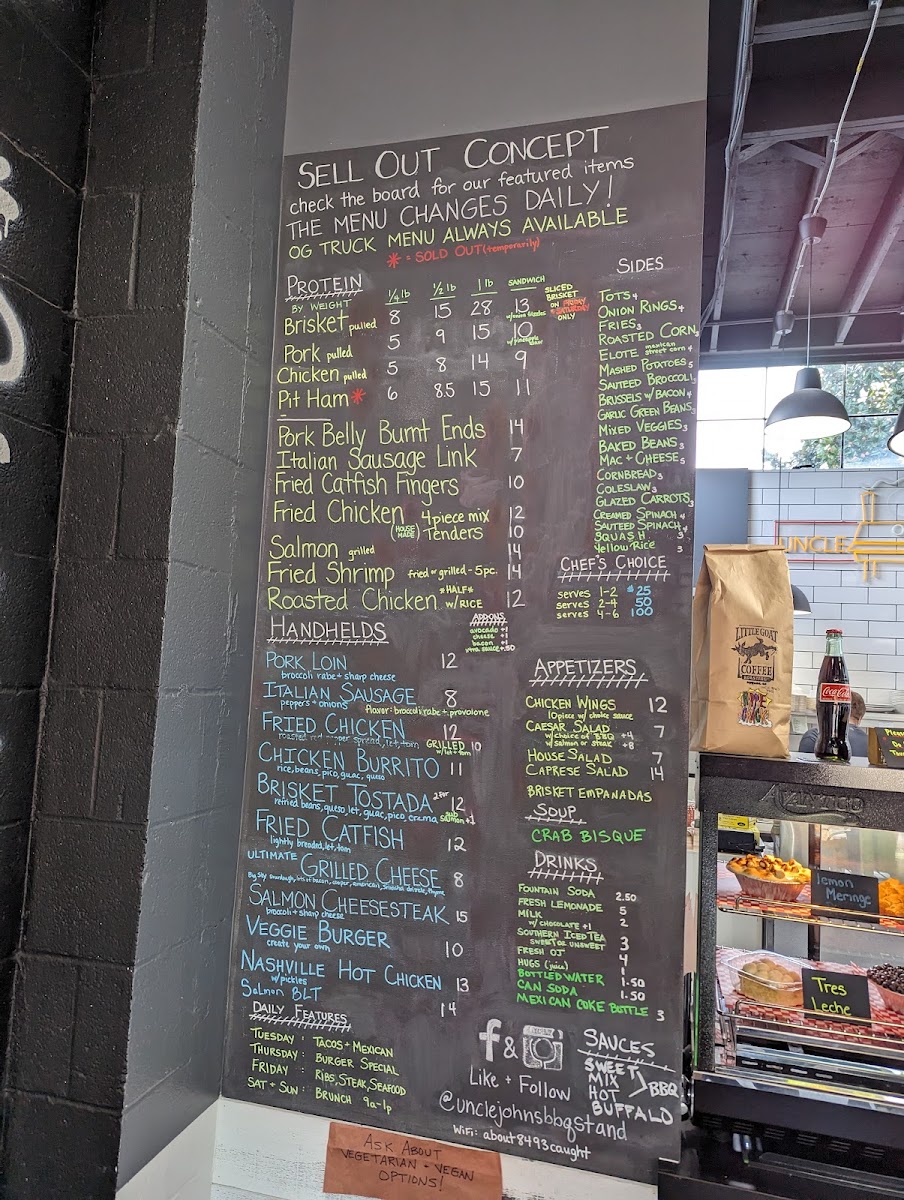 SELL OUT CONCEPT
check the board for our featured items
THE MENU CHANGES DAILY!
OG TRUCK MENU ALWAYS AVAILABLE
* = SOLD OUT (temporarily)
PROTEIN
BY WEIGHT
1/4 lb 1/2 lb 1 lb SANDWICH
Brisket pulled 8 15 28 13
SLICED BRISKET ON FRIDAY + SATURDAY ONLY
Pork pulled 5 9 15 10
Chicken pulled 5 8 14 9
Pit Ham * 6 8.5 15 11
Pork Belly Burnt Ends 14
Italian Sausage Link 7
Fried Catfish Fingers 10
Fried Chicken 4 piece mix 12
(HOUSE MADE) Tenders 10
Salmon grilled 14
Fried Shrimp fried or grilled - 5pc. 14
Roasted Chicken *HALF* w/RICE 12
HANDHELDS
ADDONS
avocado +1
cheese +1
bacon +1
xtra sauce +.50
PORK LOIN 12
broccoli rabe + sharp cheese
ITALIAN SAUSAGE 8
peppers + onions
flavor: broccoli rabe + provolone
FRIED CHICKEN 12
spread, let, tom
GRILLED 10
w/ let + tom
CHICKEN BURRITO 11
rice, beans, pico, guac, queso
BRISKET TOSTADA 2 for 12
refried beans, queso, let, guac, pico, crema
SALMON +1
FRIED CATFISH 12
lightly breaded, let, tom
ULTIMATE GRILLED CHEESE 8
SALMON CHEESESTEAK 15
broccoli + sharp cheese
VEGGIE BURGER 10
create your own
NASHVILLE HOT CHICKEN 13
w/ pickles
Salmon BLT 14
DAILY FEATURES
TUESDAY : TACOS + MEXICAN
THURSDAY : BURGER SPECIAL
FRIDAY : RIBS, STEAK, SEAFOOD
SAT + SUN : BRUNCH 9a-1p
SIDES
TOTS 4
ONION RINGS 4
FRIES 3
ROASTED CORN 3
ELOTE mexican street corn 4
MASHED POTATOES 5
SAUTEED BROCCOLI 3
BRUSSELS W/ BACON 4
GARLIC GREEN BEANS 3
MIXED VEGGIES 3
BAKED BEANS 3
MAC + CHEESE 5
CORNBREAD 3
COLESLAW 3
GLAZED CARROTS 3
CREAMED SPINACH 4
SAUTEED SPINACH 4
SQUASH 3
Yellow Rice 3
CHEF'S CHOICE
serves 1-2 $25
serves 2-4 50
serves 4-6 100
APPETIZERS
CHICKEN WINGS 12
10 piece w/ choice sauce
CAESAR SALAD 7
w/ choice of BBQ +4
w/ salmon or steak +8
HOUSE SALAD 7
CAPRESE SALAD 14
BRISKET EMPANADAS
SOUP
CRAB BISQUE
DRINKS
FOUNTAIN SODA 2.50
FRESH LEMONADE 5
MILK 2
w/ CHOCOLATE +1
SOUTHERN ICED TEA 3
SWEET OR UNSWEET
FRESH OJ 4
HUGS (juice) 1
BOTTLED WATER 1.50
CAN SODA 1.50
MEXICAN COKE BOTTLE 3
f &
Like + Follow
@unclejohnsbbqstand
WiFi: about8493caught
SAUCES
SWEET
MIX
HOT
BBQ
BUFFALO
ASK ABOUT
VEGETARIAN + VEGAN
OPTIONS!
UNCLE
LITTLE GOAT
COFFEE
Coca-Cola
AVANTCO
Lemon
Meringe
Tres
Leche